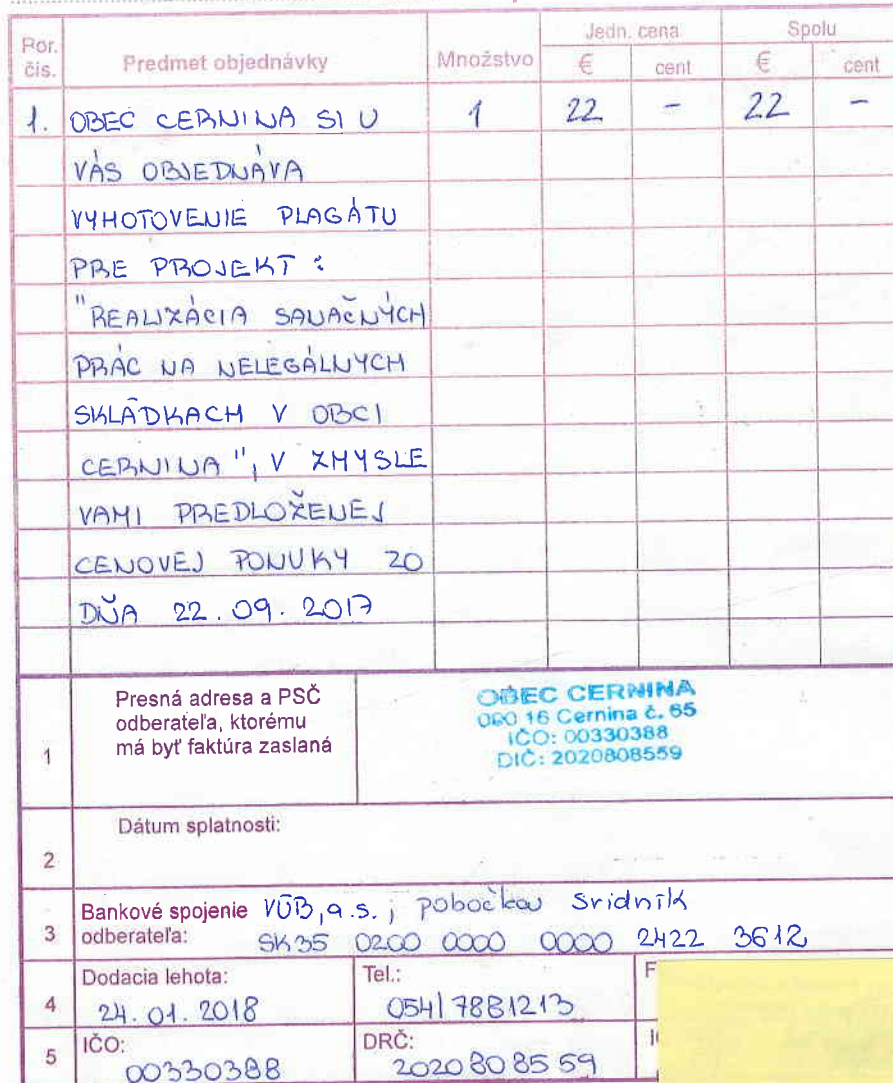 Por. čís. Predmet objednávky Množstvo Jedn. cena € cent Spolu € cent
1. OBEC CERNINA SI U 1 22 - 22 -
VÁS OBJEDNÁVA
VYHOTOVENIE PLAGÁTU
PRE PROJEKT :
"REALIZÁCIA SANAČNÝCH
PRÁC NA NELEGÁLNYCH
SKLÁDKACH V OBCI
CERNINA", V ZMYSLE
VAMI PREDLOŽENEJ
CENOVEJ PONUKY ZO
DŇA 22.09.2017
1 Presná adresa a PSČ
odberateľa, ktorému
má byť faktúra zaslaná
OBEC CERNINA
090 16 Cernina č. 65
IČO: 00330388
DIČ: 2020808559
2 Dátum splatnosti:
3 Bankové spojenie VÚB, a.s., pobočka Svidník
odberateľa: SK35 0200 0000 0000 2422 3612
4 Dodacia lehota: Tel.: F
24.01.2018 054/7881213
5 IČO: DRČ:
00330388 2020808559